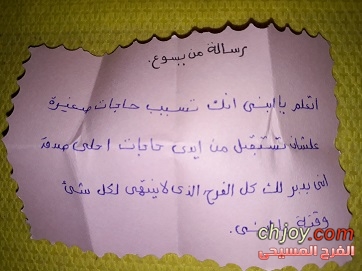 رسالة من يسوع.
اتعلم يا ابنى انك تسيب حاجات صغيرة
علشان تستقبل من ايدى حاجات احلى صدقنى
انى بدبر لك كل الفرح الذى لا ينتهى لكل شئ
وقته يا ابنى.
chjoy.com
الفرح المسيحى